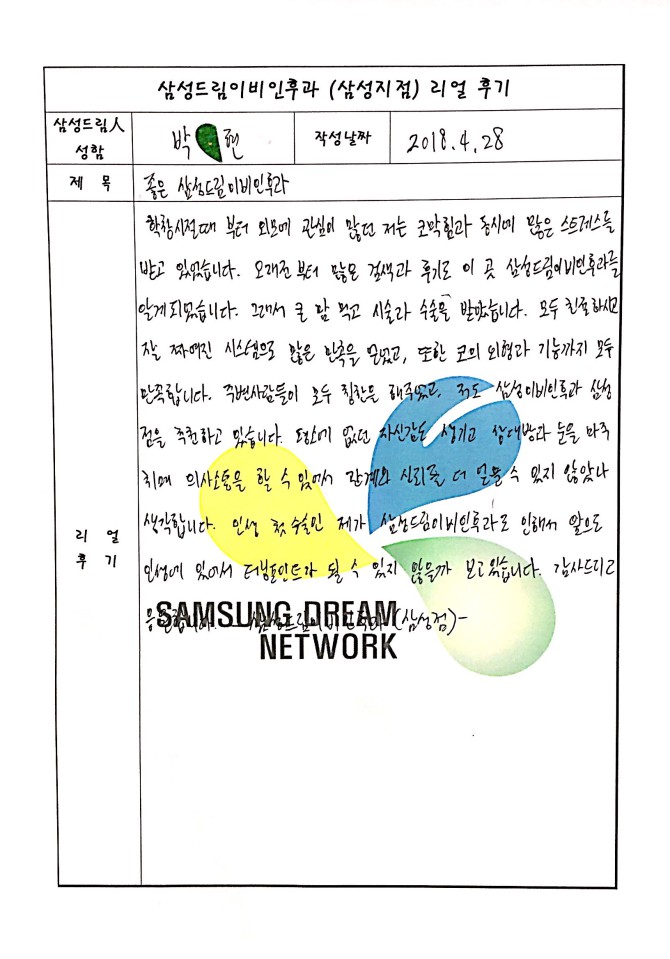 삼성드림이비인후과 (삼성지점) 리얼 후기
삼성드림人
성함
박 현
작성날짜
2018.4.28
제 목
좋은 삼성드림이비인후과
리 얼
후 기
학창시절때 부터 외모에 관심이 많던 저는 코막힘과 동시에 많은 스트레스를
받고 있었습니다. 오래전부터 많은 검색과 후기로 이 곳 삼성드림이비인후과를
알게되었습니다. 그래서 큰 맘 먹고 시술과 수술을 받았습니다. 모두 친절하시고
잘 짜여진 시스템으로 많은 만족을 얻었고, 또한 코의 외형과 기능까지 모두
만족합니다. 주변사람들이 모두 칭찬을 해주었고, 저도 삼성이비인후과 삼성
점을 추천하고 있습니다. 평소에 없던 자신감도 생기고 상대방과 눈을 마주
치며 의사소통을 할 수 있어서 관계와 신뢰를 더 얻을 수 있지 않았나
생각합니다. 인생 첫 수술인 제가 삼성드림이비인후과로 인해서 앞으로
인생에 있어서 터닝포인트가 될 수 있지 않을까 보고있습니다. 감사드리고
응원합니다. - 삼성드림이비인후과 (삼성점)-
SAMSUNG DREAM
NETWORK